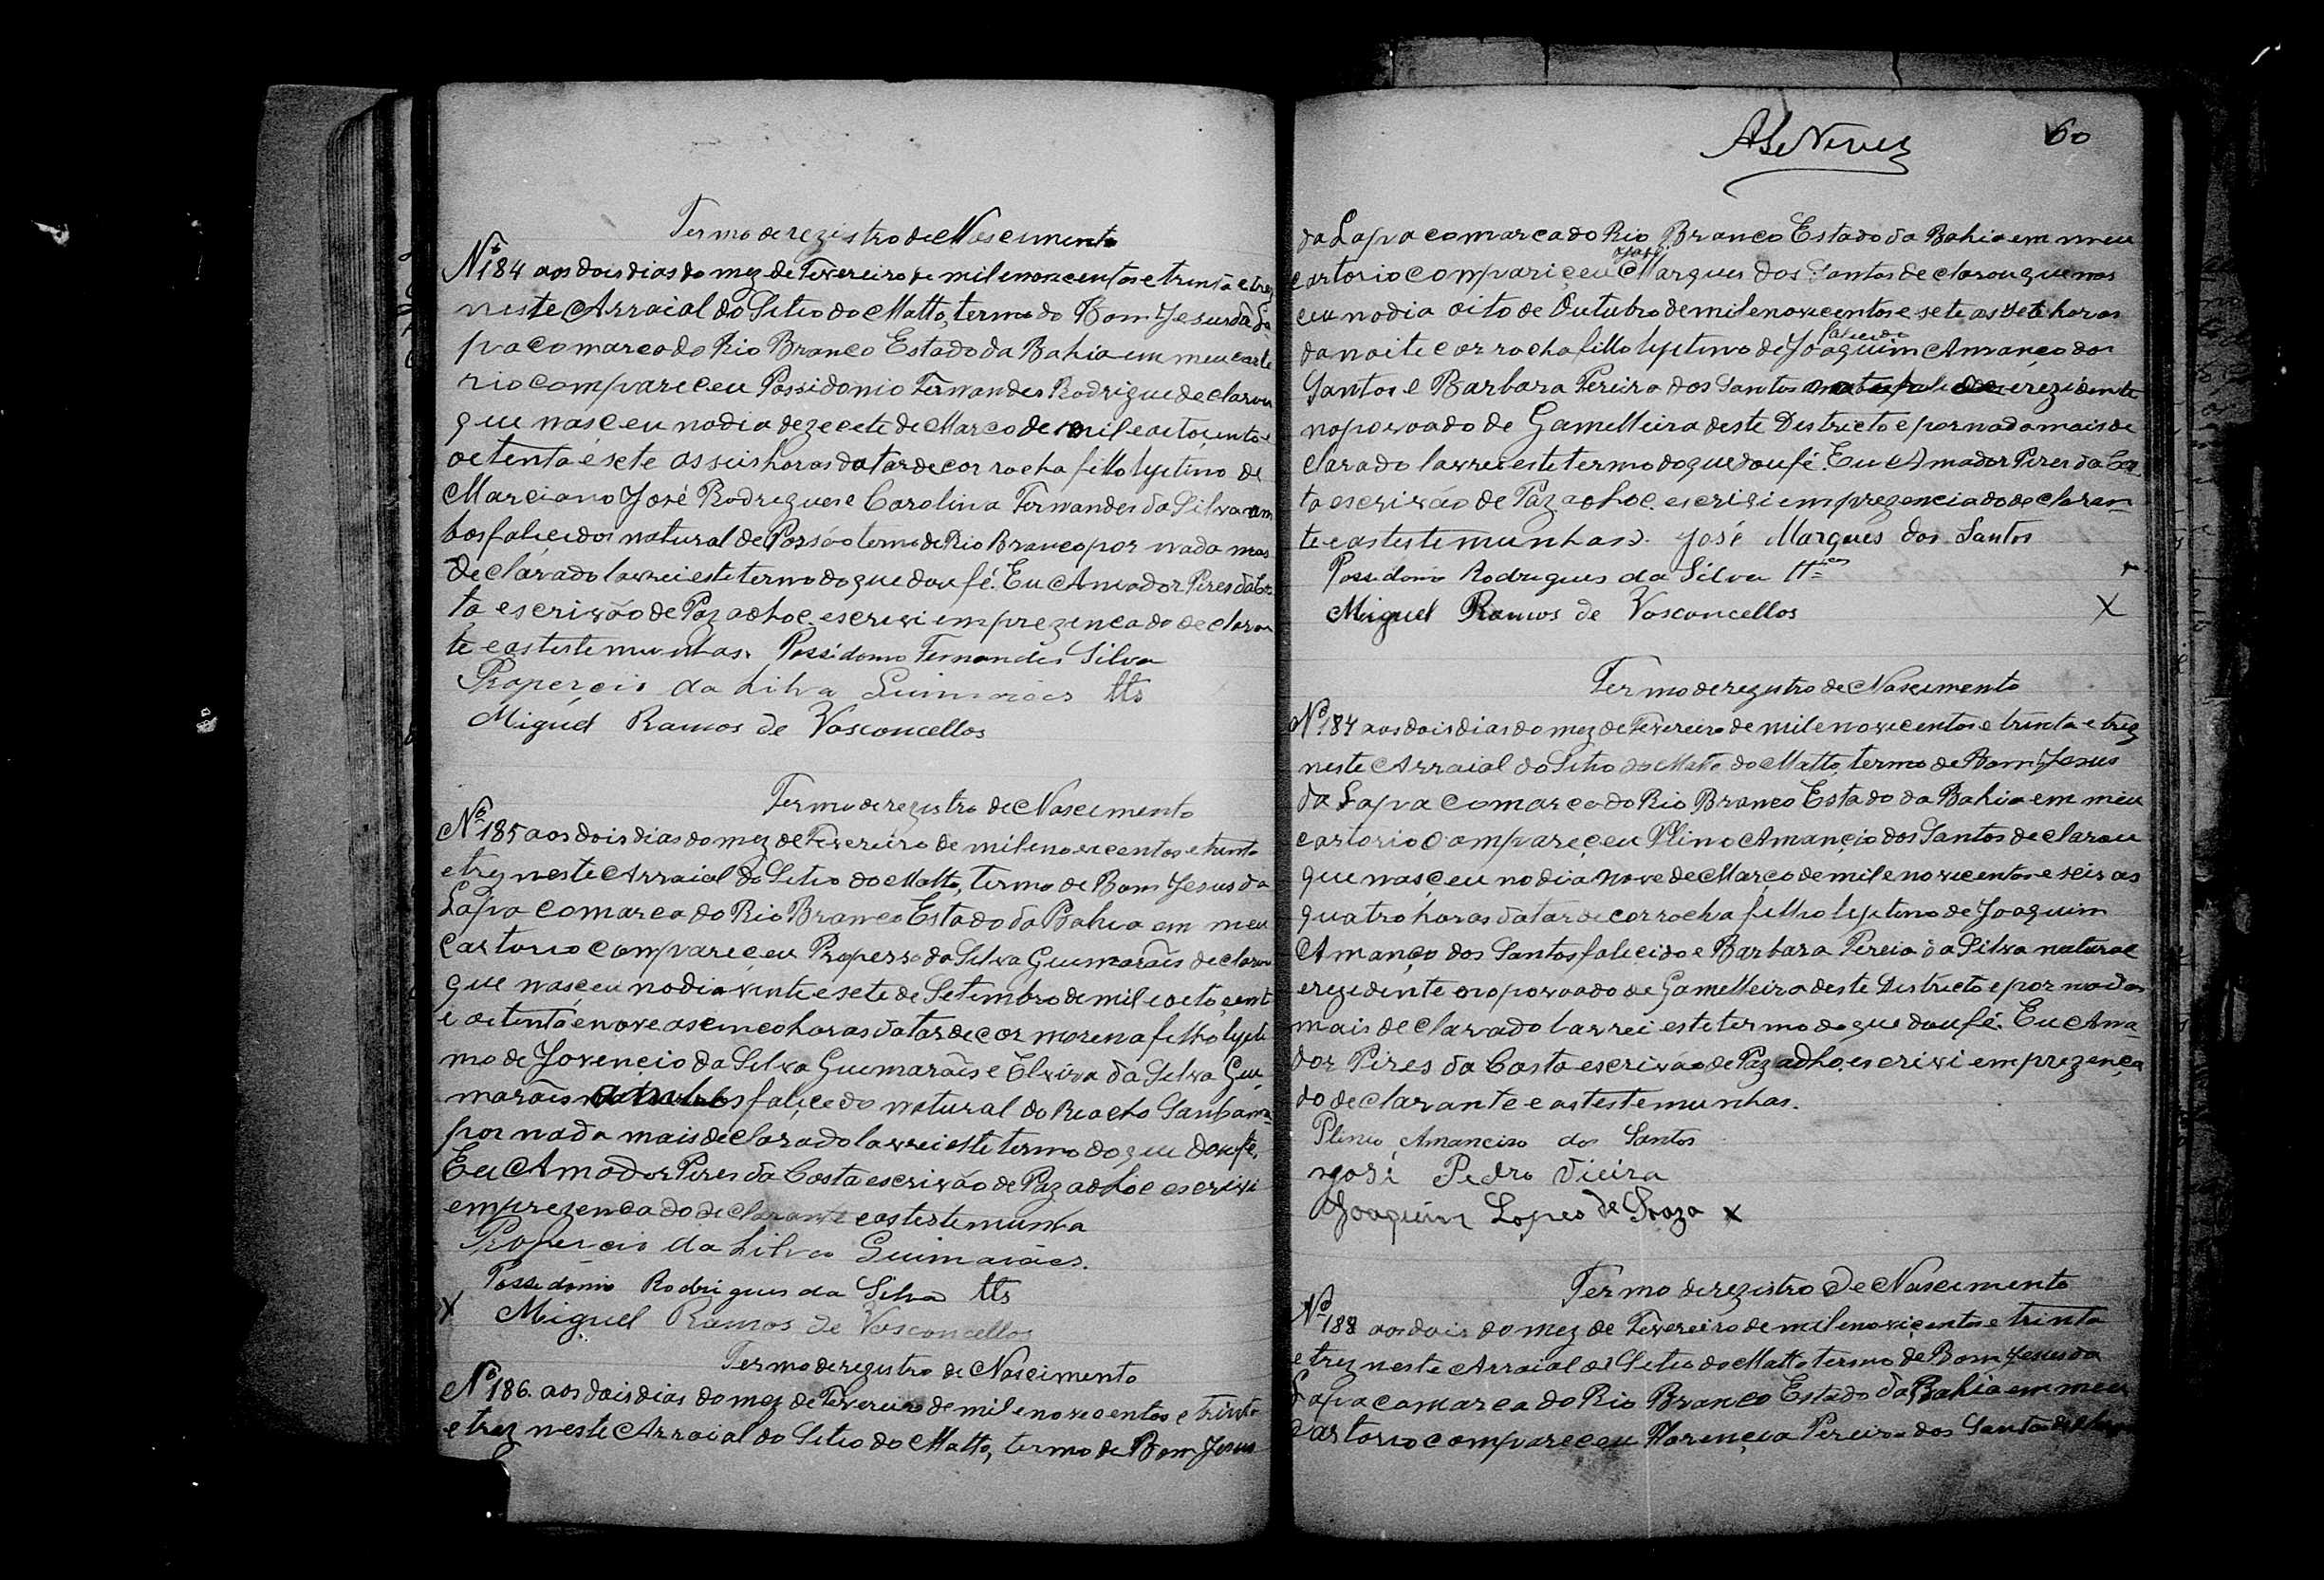 Termo de registro de Nascimento
Nº 184 aos dois dias do mez de Fevereiro de mil enovecentos e trinta e trez
neste Arraial do Sitio do Matto, termo do Bom Jesus da La
pa comarca do Rio Branco Estado da Bahia em meu carto
rio compareceu Possidonio Fernandes Rodrigue declarou
que nasceu no dia dezecete de Marco de mil eoitocentos e
oetenta e sete as seis horas da tarde cor rocha fillo lejetimo de
Marciano José Rodrigues e Carolina Fernandes da Silva am
bos faliçidos natural de termo de Rio Branco por nada mas
declarado lavrei este termo do que dou fé. Eu Amador Pires da Cos
ta escrivão de Paz adhoc. escrevi em prezenca do declaran
te e as testemunhas. Possidonio Fernandes Silva
Properçio da Silva Guimarães tts
Miguel Ramos de Vasconcellos
Termo de registro de Nascimento
Nº 185 aos dois dias do mez de Fevereiro de mil enovecentos e trinta
e trez neste Arraial do Sitio do Matto, termo de Bom Jesus da
Lapa comarca do Rio Branco Estado da Bahia em meu
cartorio compareçeu da Silva Guimarães declarou
que nasçeu no dia vinte e sete de Setembro de mil eoitoçent
e oetenta e nove as cinco horas da tarde cor morena filho lejeti
mo de Jovençio da Silva Guimarães e Elvira da Silva Gui
marães falicedo natural do Riacho
por nada mais declarado lavrei este termo do que dou fé.
Eu Amador Pires da Costa escrivão de Paz adhoc escrivi
em prezenca do declarante e as testemunha
Properçio da Silva Guimarães.
Possidonio Rodrigues da Silva tts
X Miguel Ramos de Vasconcellos
Termo de registro de Nascimento
Nº 186. aos dois dias do mez de Fevereiro de mil enovecentos e trinta
e trez neste Arraial do Sitio do Matto, termo de Bom Jesus
60
da Lapa comarca do Rio Branco Estado da Bahia em meu
José
cartorio compariçeu Marques dos Santos declarou que nas
ceu no dia oito de Outubro de mil enovecentos e sete as sete horas
falicido
da noite cor rocha fillo lejetimo de Joaquim Amançio dos
Santos e Barbara Pereira dos Santos e rezidente
no povoado de Gamelleira deste Districto e por nada mais de
clarado lavrei este termo do que dou fé. Eu Amador Pires da Cos
ta escrivão de Paz adhoc. escrivi em prezencia do declaran
te e as testemunhas. José Marques dos Santos
Possidonio Rodrigues da Silva
Miguel Ramos de Vasconcellos X
Termo de registro de Nascimento
Nº 187 aos dois dias do mez de Fevereiro de mil enovecentos e trinta e trez
neste Arraial do Sitio do Matto do Matto, termo de Bom Jesus
da Lapa comarca do Rio Branco Estado da Bahia em meu
cartorio compareçeu Plino Amançio dos Santos declarou
que nasçeu no dia nove de Março de mil enovecentos e seis as
quatro horas da tarde cor rocha filho lejetimo de Joaquim
Amanço dos Santos faliçido e Barbara Pereia da Silva natural
e rezidente no povoado de Gamelleira deste Districto e por nada
mais declarado lavrei este termo do que dou fé. Eu Ama
dor Pires da Costa escrivão de Paz adhoc escrivi em prezença
do declarante e as testemunhas.
Plinio Amancio dos Santos
José Pedro Vieira
Joaquim Lopes de Souza X
Termo de registro de Nascimento
Nº 188 aos dois do mez de Fevereiro de mil enoviçentos e trinta
e trez neste Arraial do Sitio do Matto termo de Bom Jesus da
Lapa comarca do Rio Branco Estado da Bahia em meu
cartorio compareceu Florençia Pereira dos Santos